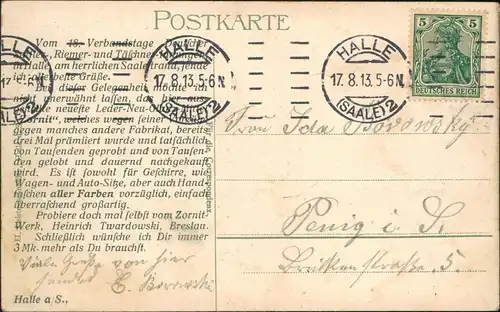 POSTKARTE
Vom 18. Verbandstage Deutscher
Riemer- und Täschner
in Halle am herrlichen Saalestrand, sende
ich allerbeste Grüße.
Bei dieser Gelegenheit möchte ich
nicht unerwähnt lassen, das hier aus-
Leder-
„Zornit“, welches wegen seiner
gegen manches andere Fabrikat, bereits
drei Mal prämiiert wurde und tatsächlich
von Tausenden geprobt und von Tausen-
den gelobt und dauernd nachgekauft
wird. Es ist sowohl für Geschirre, wie
Wagen- und Auto-Sitze, aber auch Hand-
taschen aller Farben vorzüglich, einfach
überraschend großartig.
Probiere doch mal selbst vom Zornit-
Werk, Heinrich Twardowski, Breslau.
Schließlich wünsche ich Dir immer
3 Mk. mehr als Du brauchst.
Viele Grüße von hier
sendet E. Borowski
Halle a/S.,
HALLE
17.8.13.5-6N.
(SAALE) 2
HALLE
17.8.13.5-6N.
(SAALE) 2
5 5
DEUTSCHES REICH
Frau Ida Borowsky
Penig i. S.
Brückenstraße 5.